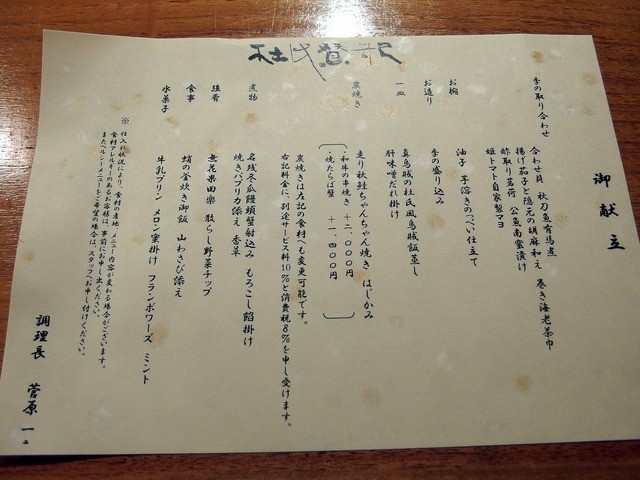 杜氏賛歌
御献立
季の取り合わせ
合わせ貝 秋刀魚有馬煮 巻き海老茶巾
揚げ茄子と隠元の胡麻和え
酢取り茗荷 公魚南蛮漬け
姫トマト自家製マヨ
お椀
油子 芋溶きのっぺい仕立て
お造り
季の盛り込み
一皿
真烏賊の杜氏風烏賊飯蒸し
肝味噌だれ掛け
炭焼き
走り秋鮭ちゃんちゃん焼き はじかみ
・和牛の串焼き +二、〇〇〇円
・焼たらば蟹 +一、四〇〇円
炭焼きは左記の食材へも変更可能です。
右記料金に、別途サービス料10%と消費税8%を申し受けます。
煮物
名残冬瓜饅頭蟹射込み もろこし餡掛け
焼きパプリカ添え 香草
強肴
無花果田楽 散らし野菜チップ
食事
蛸の釜炊き御飯 山わさび添え
水菓子
牛乳プリン メロン蜜掛け フランボワーズ ミント
※ 仕入れ状況により、食材の産地、メニュー内容が変わる場合がございます。
食材アレルギーのあるお客様は、事前にお申し出ください。
またヘルシーメニューをご希望の場合は、スタッフへお申し付けください。
調理長 菅原 一